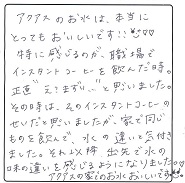 アクアスのお水は、本当に
とってもおいしいです!!
特に感じるのが、職場で
インスタントコーヒーを飲んだ時。
正直"え?まずい…"と思いました。
その時は、そのインスタントコーヒーの
せいだと思いましたが、家で同じ
ものを飲んで、水の違いと気付き
ました。それ以降 出先で水の
味の違いを感じるようになりました。
アクアスの家のお水おいしいです